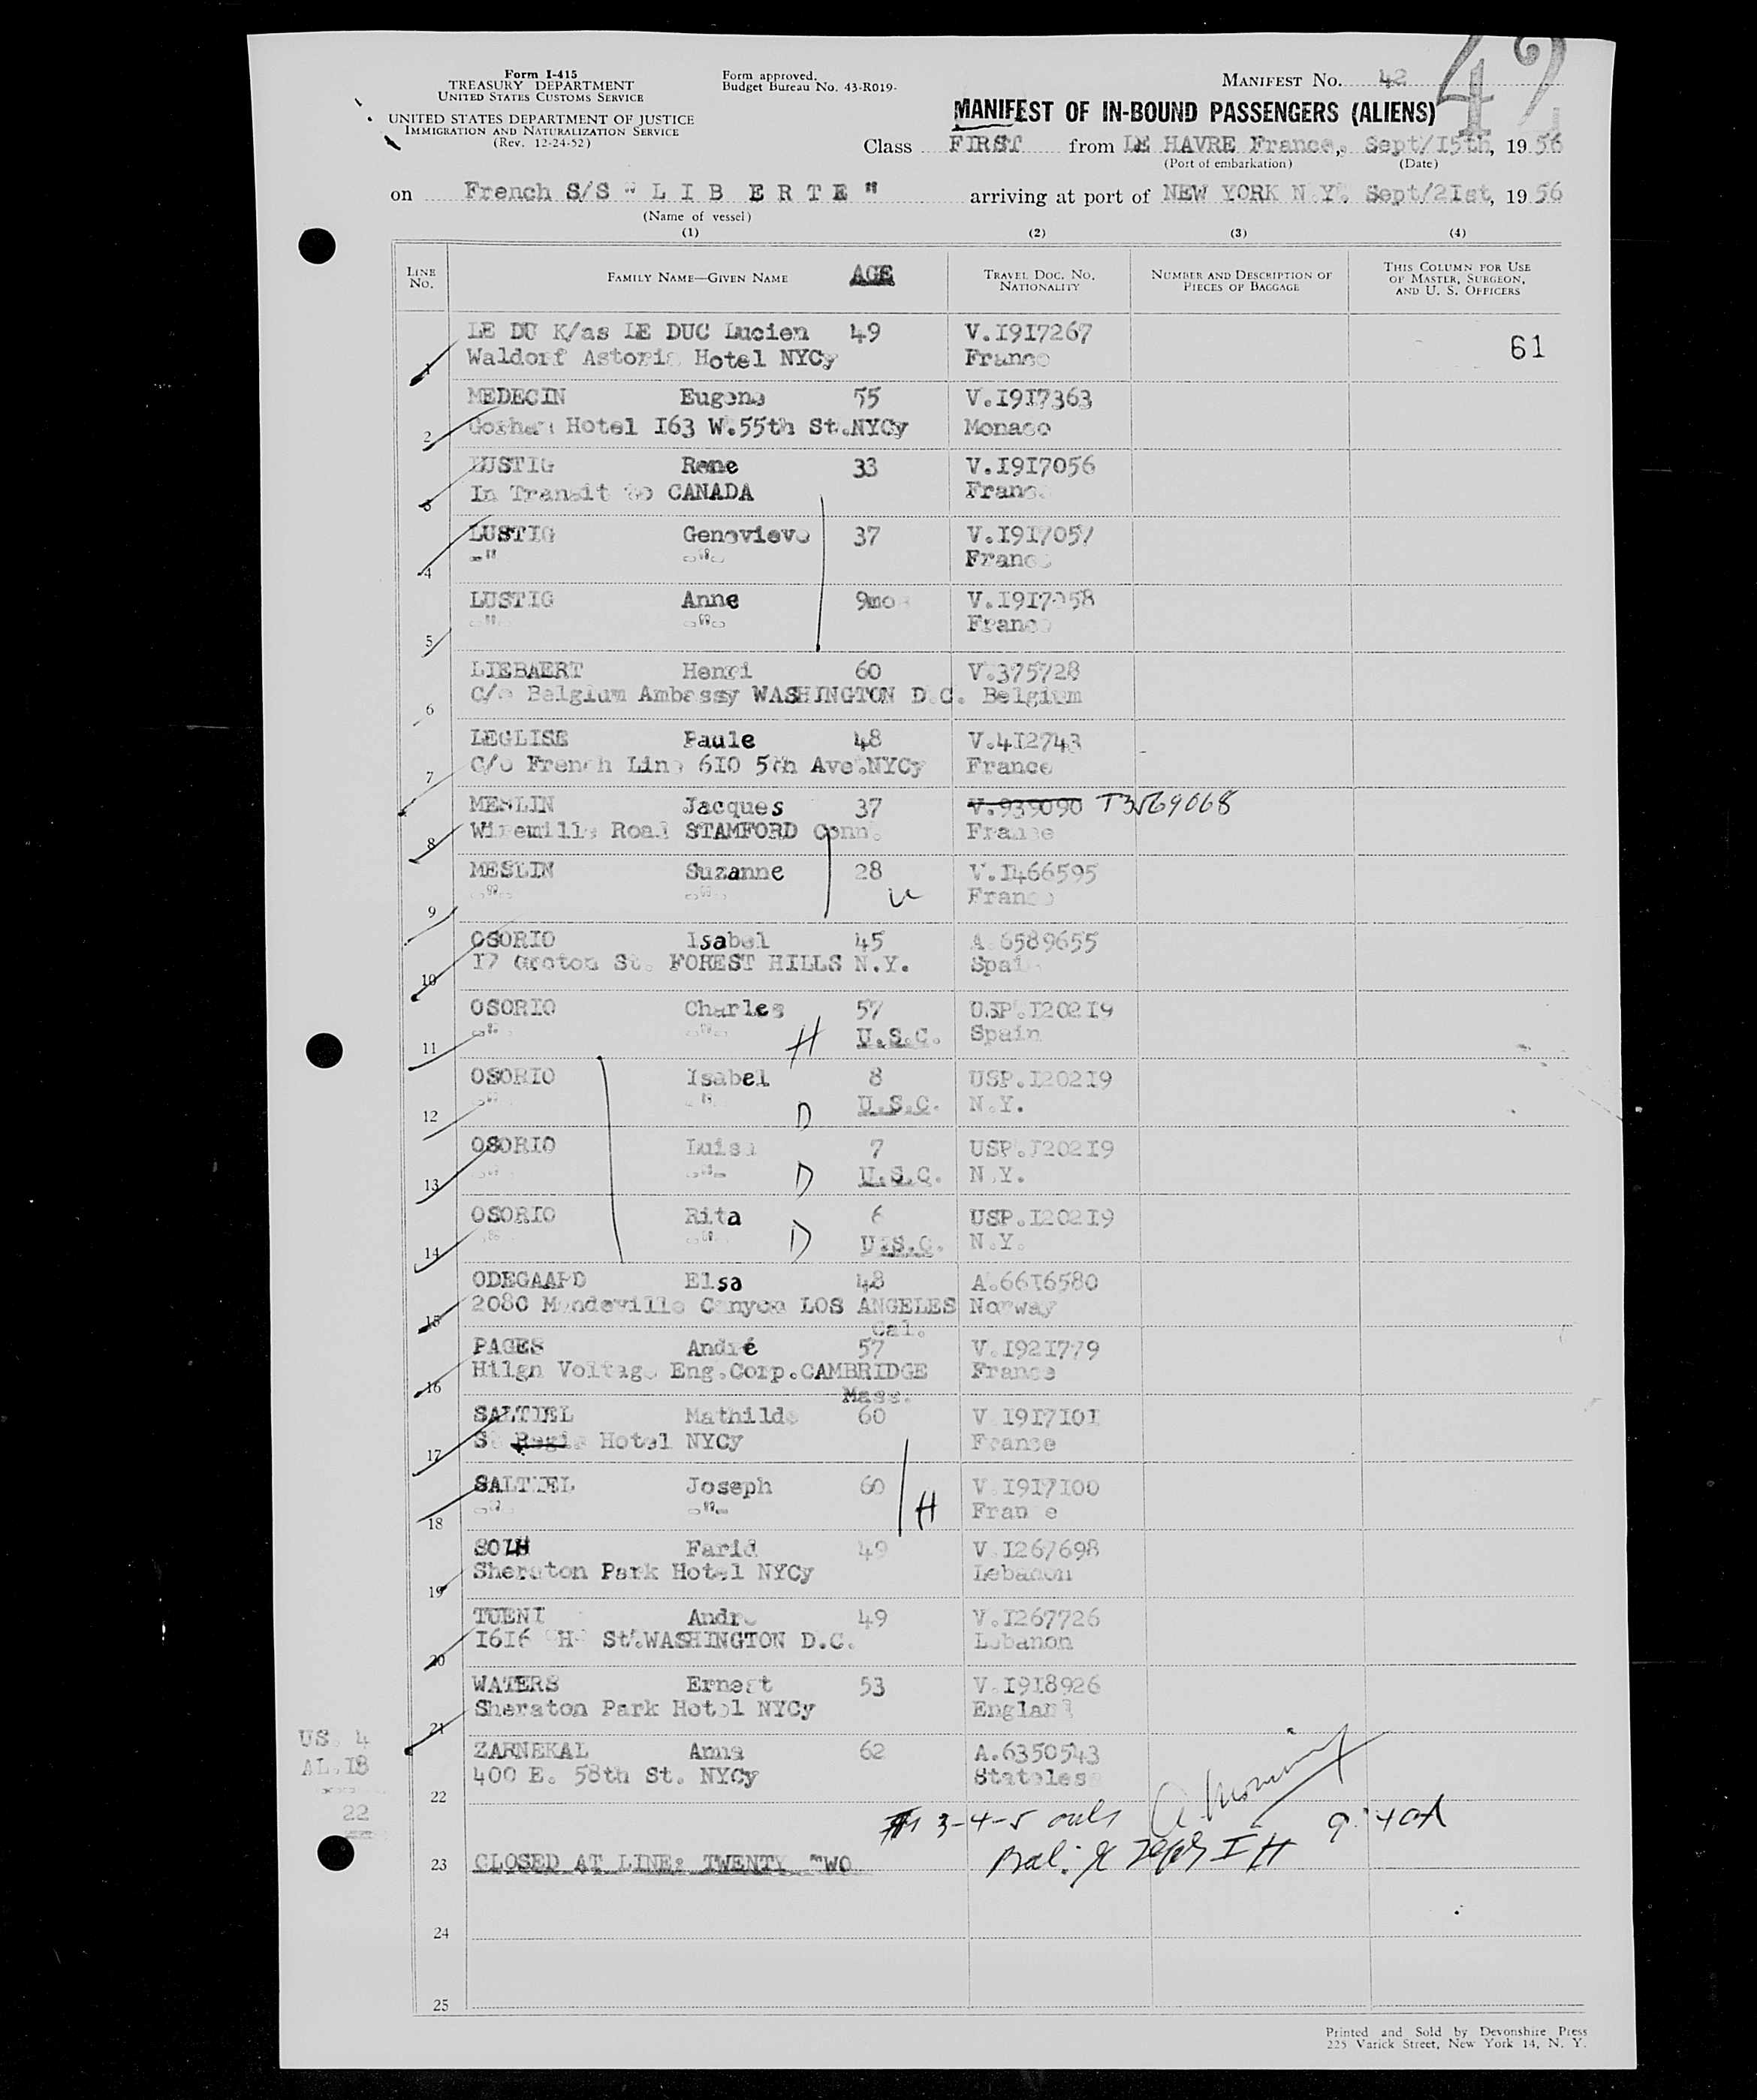 Form I-415
TREASURY DEPARTMENT
UNITED STATES CUSTOMS SERVICE
UNITED STATES DEPARTMENT OF JUSTICE
IMMIGRATION AND NATURALIZATION SERVICE
(Rev. 12-24-52)
Form approved.
Budget Bureau No. 43-R019-
MANIFEST No. 42
42
MANIFEST OF IN-BOUND PASSENGERS (ALIENS)
Class FIRST from LE HAVRE France, Sept/15th, 19 56
(Port of embarkation) (Date)
on French S/S " L I B E R T E " arriving at port of NEW YORK N.Y. Sept/2Ist, 19 56
(Name of vessel)
(1) (2) (3) (4)
LINE No. FAMILY NAME—GIVEN NAME AGE TRAVEL DOC. No. NATIONALITY NUMBER AND DESCRIPTION OF PIECES OF BAGGAGE THIS COLUMN FOR USE OF MASTER, SURGEON, AND U. S. OFFICERS
LE DU K/as LE DUC Lucien 49 V.I9I7267 61
1 Waldorf Astoria Hotel NYCy France
MEDECIN Eugene 55 V.I9I7363
2 Gotham Hotel I63 W.55th St.NYCy Monaco
LUSTIG Rene 33 V.I9I7056
3 In Transit to CANADA France
LUSTIG Genevieve 37 V.I9I7057
4 -"- -"- France
LUSTIG Anne 9mos V.I9I7058
5 -"- -"- France
LIEBAERT Henri 60 V.375728
6 C/o Belgium Ambassy WASHINGTON D.C. Belgium
LEGLISE Paule 48 V.4I2743
7 C/o French Line 6I0 5th Ave.NYCy France
MESLIN Jacques 37 V.939090 T3569068
8 Wiremills Road STAMFORD Conn. France
MESLIN Suzanne 28 V.I466595
9 -"- -"- France
OSORIO Isabel 45 A.6589655
10 I7 Groton St. FOREST HILLS N.Y. Spain
OSORIO Charles 57 USP.I202I9
11 -"- -"- H U.S.C. Spain
OSORIO Isabel 8 USP.I202I9
12 -"- -"- D U.S.C. N.Y.
OSORIO Luisa 7 USP.I202I9
13 -"- -"- D U.S.C. N.Y.
OSORIO Rita 6 USP.I202I9
14 -"- -"- D U.S.C. N.Y.
ODEGAARD Elsa 48 A.66I6580
15 2080 Mandeville Canyon LOS ANGELES Norway
Cal.
PAGES André 57 V.I92I779
16 Hilgn Voltage Eng.Corp.CAMBRIDGE France
Mass.
SALTIEL Mathilde 60 V.I9I7I0I
17 St Regis Hotel NYCy France
SALTIEL Joseph 60 V.I9I7I00
18 -"- -"- H France
SOLH Farid 49 V.I267698
19 Sheraton Park Hotel NYCy Lebanon
TUENI Andre 49 V.I267726
20 I6I6 "H" St.WASHINGTON D.C. Lebanon
WATERS Ernest 53 V.I9I8926
21 Sheraton Park Hotel NYCy England
US. 4
AL.I8
22
ZARNEKAL Anna 62 A.6350543
22 400 E. 58th St. NYCy Stateless
3-4-5
23 CLOSED AT LINE: TWENTY TWO
24
25
Printed and Sold by Devonshire Press
225 Varick Street, New York 14, N. Y.